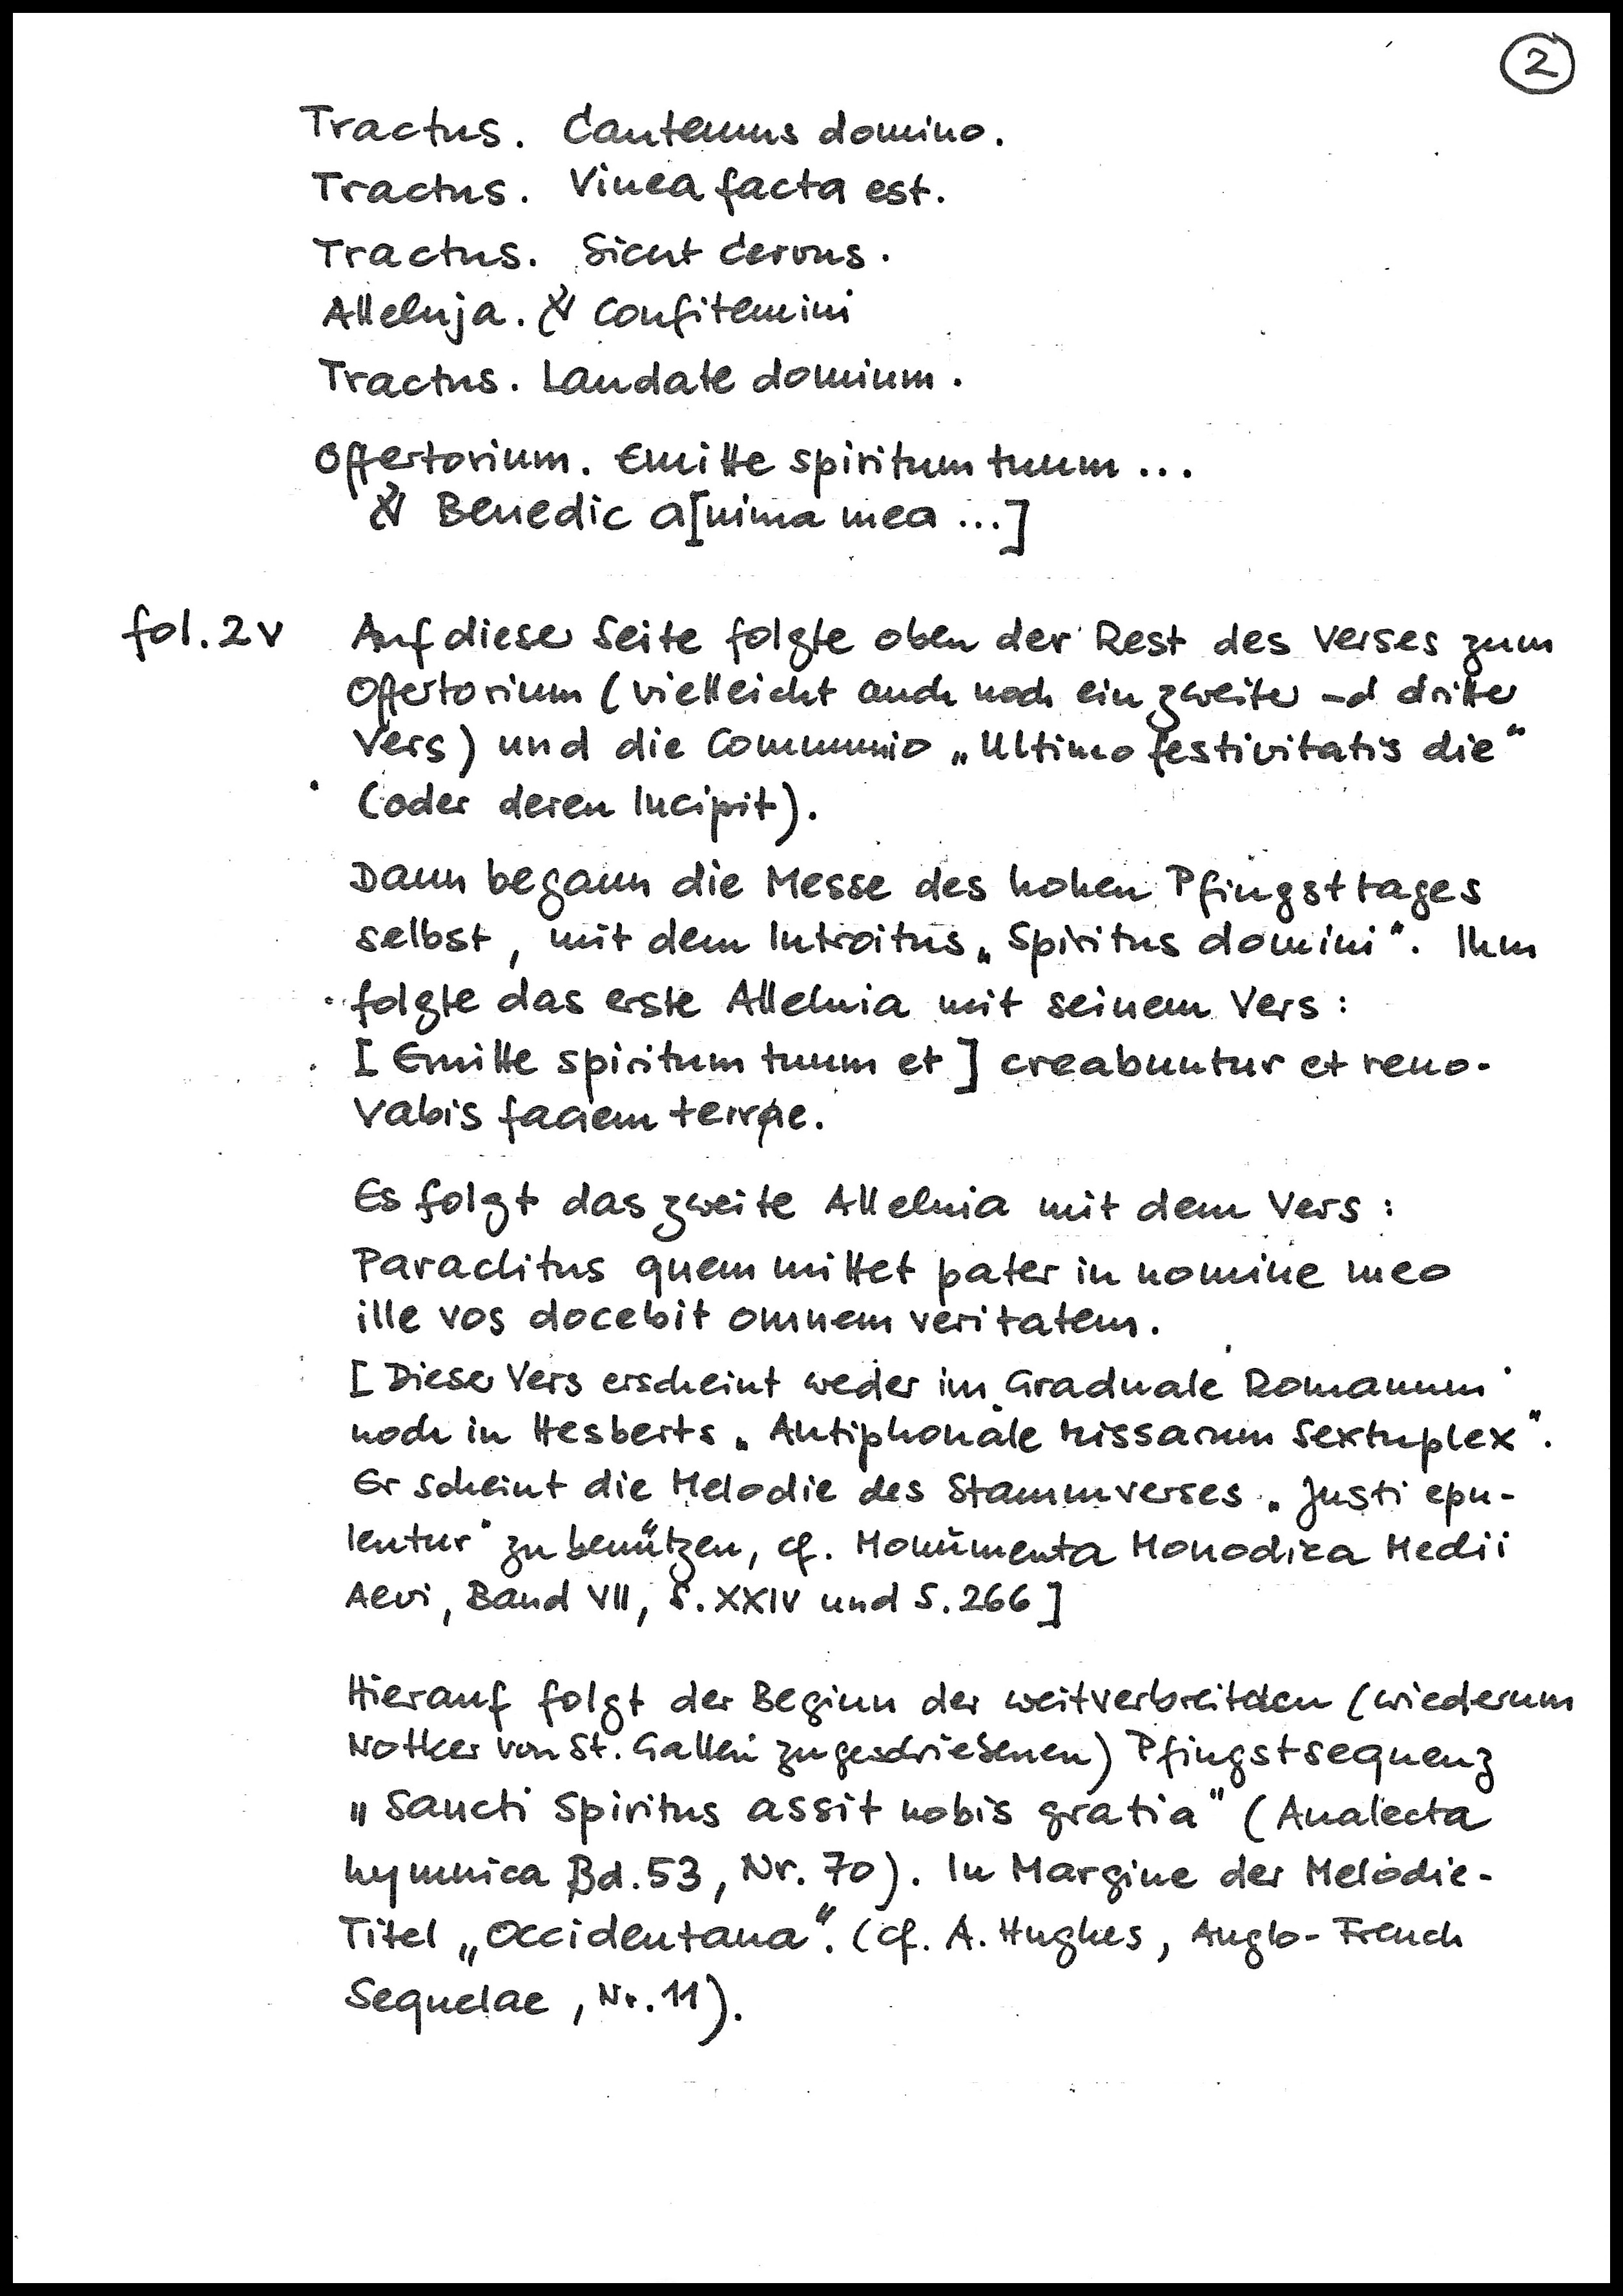 2
Tractus. Cantemus domino.
Tractus. Vinea facta est.
Tractus. Sicut cervus.
Alleluja. ℣ Confitemini
Tractus. Laudate dominum.
Offertorium. Emitte spiritum tuum ...
℣ Benedic a[nima mea ...]
fol. 2v Auf dieser Seite folgte oben der Rest des Verses zum
Offertorium (vielleicht auch noch ein zweiter und dritter
Vers) und die Communio „Ultimo festivitatis die"
(oder deren Incipit).
Dann begann die Messe des hohen Pfingsttages
selbst, mit dem Introitus „Spiritus domini". Ihm
folgte das erste Alleluia mit seinem Vers:
[Emitte spiritum tuum et] creabuntur et reno-
vabis faciem terrae.
Es folgt das zweite Alleluia mit dem Vers:
Paraclitus quem mittet pater in nomine meo
ille vos docebit omnem veritatem.
[Dieser Vers erscheint weder im Graduale Romanum
noch in Hesberts „Antiphonale Missarum Sextuplex".
Er scheint die Melodie des Stammverses „Justi epu-
lentur" zu benützen, cf. Monumenta Monodica Medii
Aevi, Band VII, S. XXIV und S. 266]
Hierauf folgt der Beginn der weitverbreiteten (wiederum
Notker von St. Gallen zugeschriebenen) Pfingstsequenz
„Sancti Spiritus assit nobis gratia" (Analecta
hymnica Bd. 53, Nr. 70). In Margine der Melodie-
Titel „Occidentana". (cf. A. Hughes, Anglo-French
Sequelae, Nr. 11).